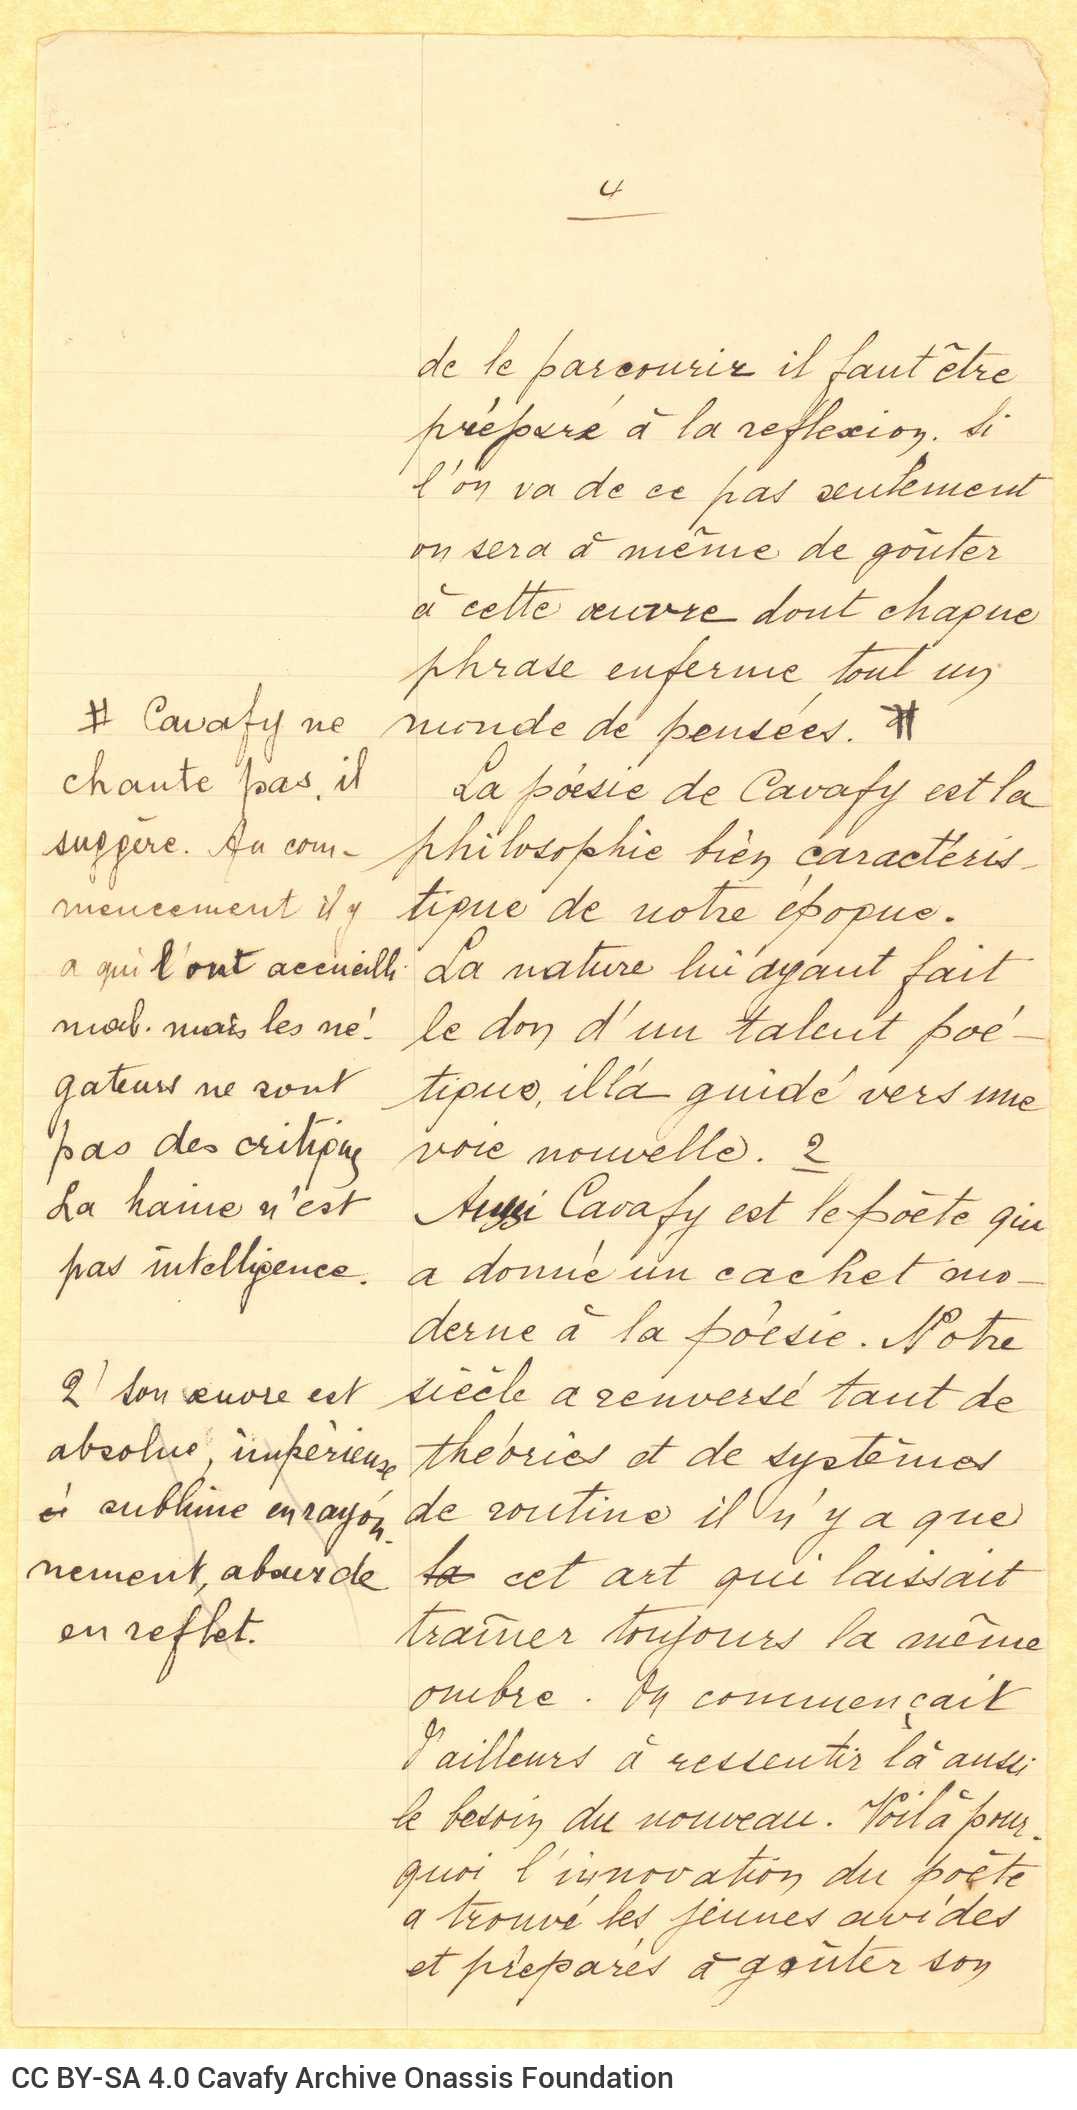 4
de le parcourir il faut être
préparé à la reflexion. Si
l'on va de ce pas seulement
on sera à même de goûter
à cette œuvre dont chaque
phrase enferme tout un
monde de pensées. #
La poésie de Cavafy est la
philosophie bien caractéris-
tique de notre époque.
La nature lui ayant fait
le don d'un talent poé-
tique, il l'a guidé vers une
voie nouvelle. 2
Aussi Cavafy est le poète qui
a donné un cachet mo-
derne à la poésie. Notre
siècle a renversé tant de
théories et de systèmes
de routine il n'y a que
la cet art qui laissait
traîner toujours la même
ombre. On commençait
d'ailleurs à ressentir là aussi
le besoin du nouveau. Voilà pour-
quoi l'innovation du poète
a trouvé les jeunes avides
et préparés à goûter son
# Cavafy ne
chante pas, il
suggère. Au com-
mencement il y
a qui l'ont accueilli
mal. mais les né-
gateurs ne sont
pas des critiques
La haine n'est
pas intelligence.
2 Son œuvre est
absolue, impérieuse
et sublime en rayon-
nement, absurde
en reflet.
CC BY-SA 4.0 Cavafy Archive Onassis Foundation